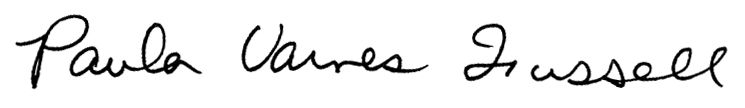 Paula Varnes Trussell